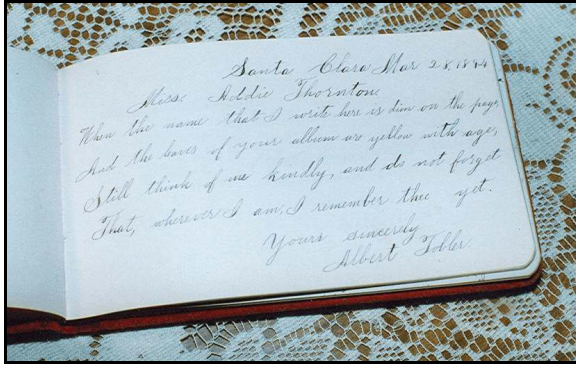 Santa Clara Mar 28, 1884
Miss Addie Thornton
When the name that I write here is dim on the page
And the leaves of your album are yellow with age,
Still think of me kindly, and do not forget
That, wherever I am, I remember thee yet.
Yours sincerely
Albert Tobler.